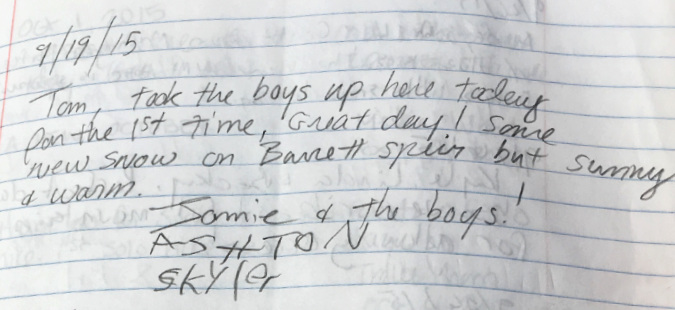 9/19/15
Tom, took the boys up here today
for the 1st time, Great day! Some
new snow on Barrett spur but sunny
& warm.
Jamie & the boys!
ASHTON
SKYler